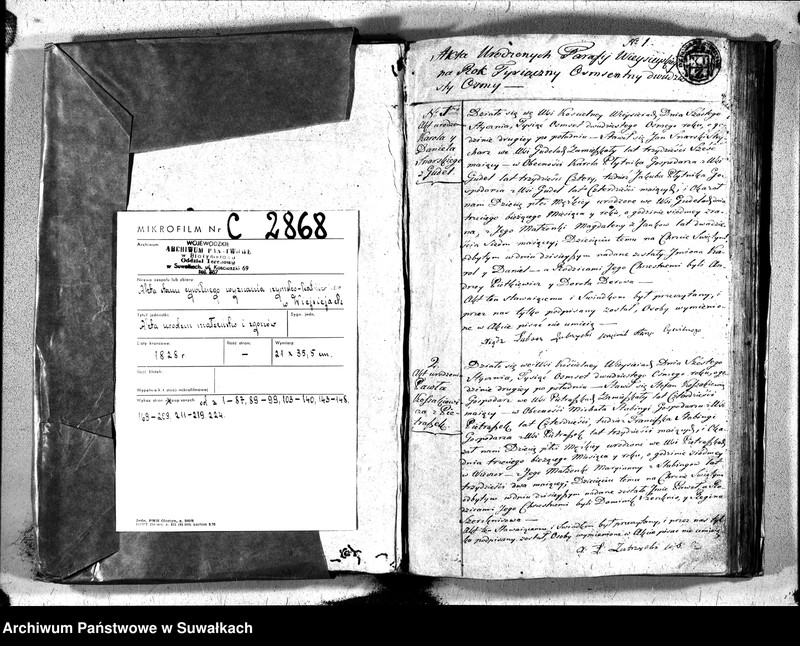 MIKROFILM Nr C 2868
Archiwum
WOJEWÓDZKIE
ARCHIWUM PAŃSTWOWE
w Białymstoku
Oddział Terenowy
w Suwałkach, ul. Kościuszki 69
Nazwa zespołu lub zbioru
Akta stanu cywilnego wyznania rzymsko-katolickiego
w Wiejsiejach
Tytuł jednostki
Sygn. jedn.
Akta urodzeń małżeństw i zgonów
Daty krańcowe
Ilość stron
Wymiary
1828 r.
–
21 x 35,5 cm.
Ilość klatek
Wypełnia się z chwilą mikrofilmowania
1-87, 89-99, 103-140, 143-148,
169-209, 211-219, 224.
№ 1.
Akta Urodzonych Parafij Wieysieyskiey
na Rok Tysiączny Osmsetny dwudzie
sty Osmy —
Akt urodzen
Karola y
Daniela
Snarskiego
z Gudel
Działo się we Wsi Kościelney Wieysieiach Dnia Szostego
Stycznia, Tysiąc Osmset dwudziestego Osmego roku, o go
dzinie drugiey po południu — Stawił się Jan Snarski
we Wsi Gudelach Zamieszkały lat trzydzieści Sześć
maiący — w Obecności Karola Płytnika Gospodarza z Wsi
Gudel lat trzydzieści Cztery, tudzież Jakuba Płytnika Go
spodarza z Wsi Gudel lat Czterdzieści maiących, i Okazał
nam Dziecię płci Męzkiey urodzone we Wsi Gudelach dnia
trzeciego bieżącego Miesiąca y roku, o godzinie siodmey zra
na, z Jego Małżonki Magdaleny z lat dwadzie
ścia Siedm maiącey; Dziecięciu temu na Chrzcie Swiętym
odbytym w dniu dzisieyszym nadane zostały Imiona Ka
rol y Daniel — a Rodzicami Jego Chrzestnemi byli An
drzey Pietkiewicz y Dorota
Akt ten Stawaiącemu i Swiadkom był przeczytany, i
przez nas tylko podpisany został, Osoby wymienio
ne w Akcie pisać nie umieią —
Xiądz Łukasz Zubrzycki
2.
Akt urodzenia
Pawła
z Pie
traszek
Działo się we Wsi Kościelney Wieysieiach Dnia Szostego
Stycznia, Tysiąc Osmset dwudziestego Osmego roku, o go
dzinie drugiey po południu — Stawił się Stefan
Gospodarz we Wsi Pietraszkach Zamieszkały lat Czterdzieści
maiący — w Obecności Michała Stabingi Gospodarza z Wsi
Pietraszek lat Czterdzieści, tudzież Franciszka Stabingi
Gospodarza z Wsi Pietraszek lat trzydzieści maiących, i Oka
zał nam Dziecię płci Męzkiey urodzone we Wsi Pietraszkach
dnia trzeciego bieżącego Miesiąca y roku, o godzinie siodmey
w Wieczor — z Jego Małżonki Maryanny z Stabingow lat
trzydzieści dwa maiącey; Dziecięciu temu na Chrzcie Swiętym
odbytym w dniu dzisieyszym nadane zostało Imie Paweł, a Ro
dzicami Jego Chrzestnemi byli Dominik y Regina
Akt ten Stawaiącemu i Swiadkom był przeczytany, i przez nas tyl
ko podpisany został, Osoby wymienione w Akcie pisać nie umieią
X. Ł. Zubrzycki
Archiwum Państwowe w Suwałkach